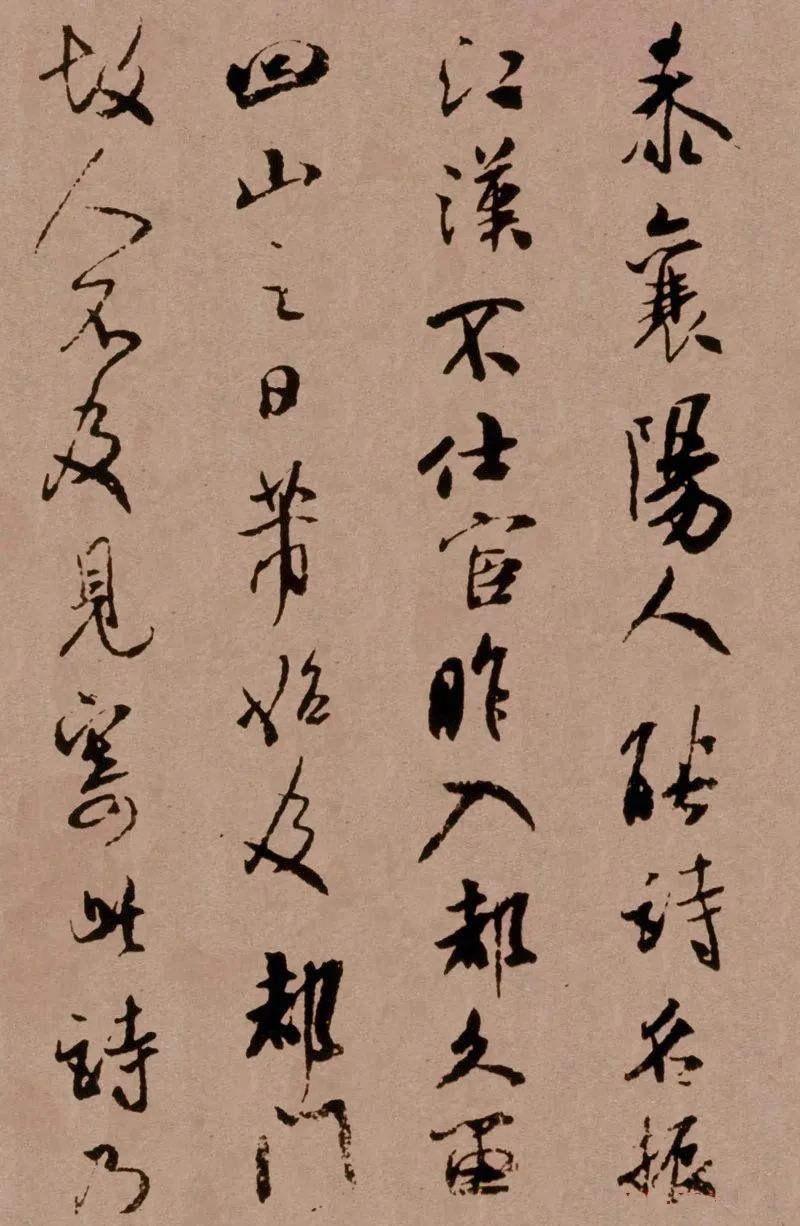 泰襄陽人能詩名振
江漢不仕宦昨入都久留
回山之日芾始及都門
故人不及見寄此詩乃